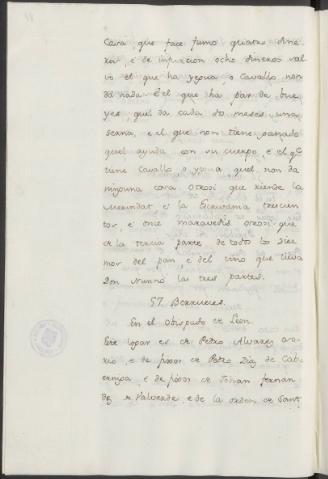 Casa que face fumo quatro dine
ros, e de infurcion ocho dineros sal
vo el que ha yegua o Cavallo non
dá nada. E el que ha par de bue
yes quel da cada dos meses una
serna, e el que non tiene ganado
quel ayuda con su cuerpo, e el qe
tiene Cavallo o yegua quel non da
ninguna cosa. Otrosi que riende la
Merindat e la Escrivania trecien
tos, e once maravedis. Otrosi que
ha la tercia parte de todo los diez
mos del pan, e del vino que lieva
Don Nunno las tres partes.
57. Berrueces.
En el Obispado de Leon.
Este logar es de Pedro Alvarez
e de fijos de Pedro Diaz de
e de fijos de Johan Fernan
dez de Valverde e de la orden de Sant